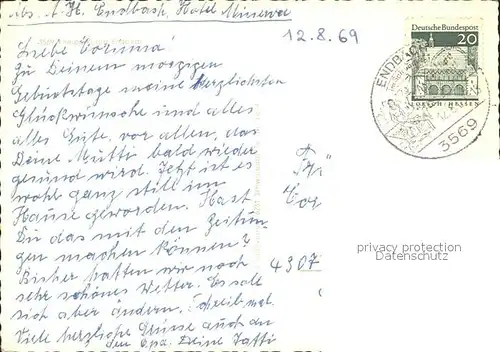 Abs. A. H. Endbach Hotel Minerva
12.8.69
Liebe Corinna!
Zu Deinem morgigen
Geburtstage meine herzlichsten
Glückwünsche und alles
alles Gute, vor allen, das
Deine Mutti bald wieder
gesund wird. Jetzt ist es
wohl ganz still im
Hause geworden. Hast
Du das mit den Zeitun-
gen machen können?
Bisher hatten wir noch
sehr schönes Wetter. Es soll
sich aber ändern. Schreib mal.
Viele herzliche Grüsse auch an
den Opa. Deine
Deutsche Bundespost
20
LORSCH/HESSEN
ENDBACH
3569
4307
privacy protection
Datenschutz